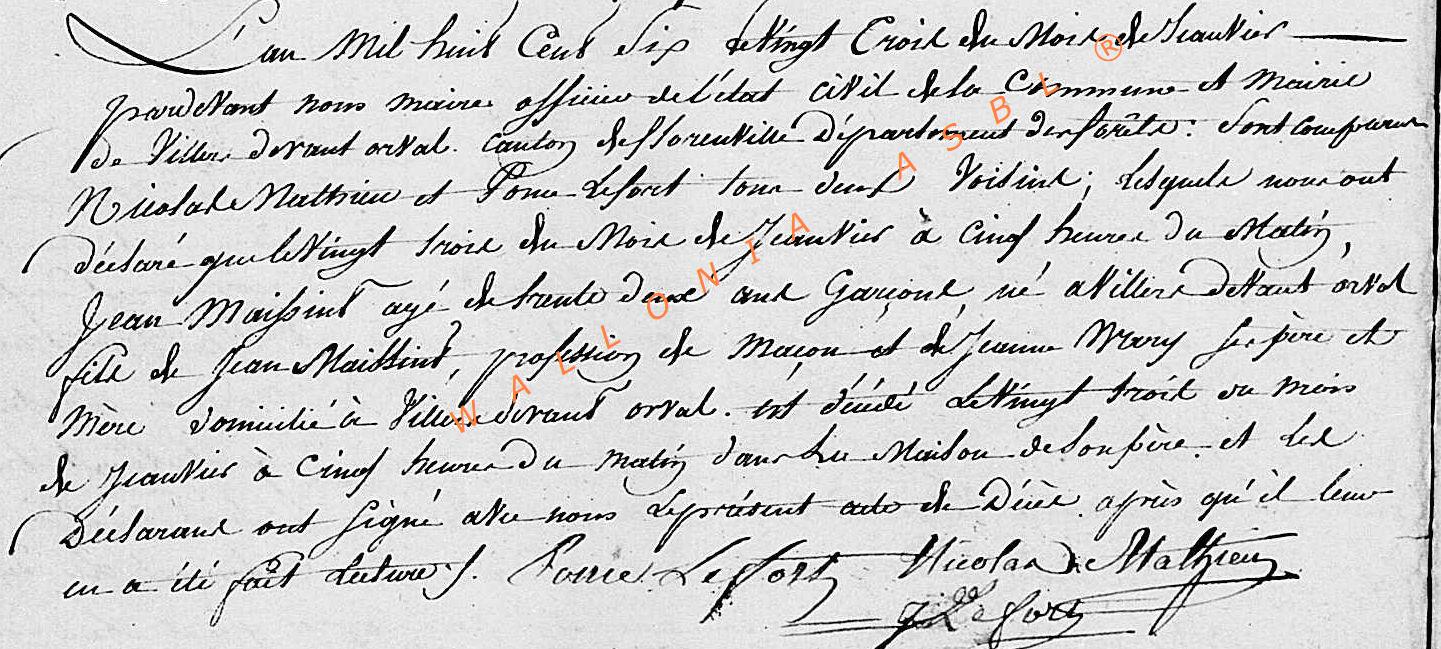 L'an mil huit cent six le vingt trois du mois de Jeanvier
pardevant nous maire officier de l'état civil de la commune et mairie
de Villers devant orval. canton de florenville Département des forêts: sont comparus
Nicolas Mathieu et Ponce Lefort tous deux voisins; lesquels nous ont
déclaré que le vingt trois du mois de Jeanvier à cinq heures du matin,
Jean Maissint agé de trente deux ans Garçons, né a Villers devant orval
fils de Jean Maissint, profession de maçon et de Jeanne ses père et
mère domicilié à Villers devant orval. est décédé le vingt trois du mois
de Jeanvier à cinq heures du matin dans la maison de son père. et les
Déclarans ont signé avec nous le présent acte de Décès. après qu'il leur
en a été fait lecture. Ponce Lefort Nicolas Mathieu
Lefort
WALLONIA ASBL ®